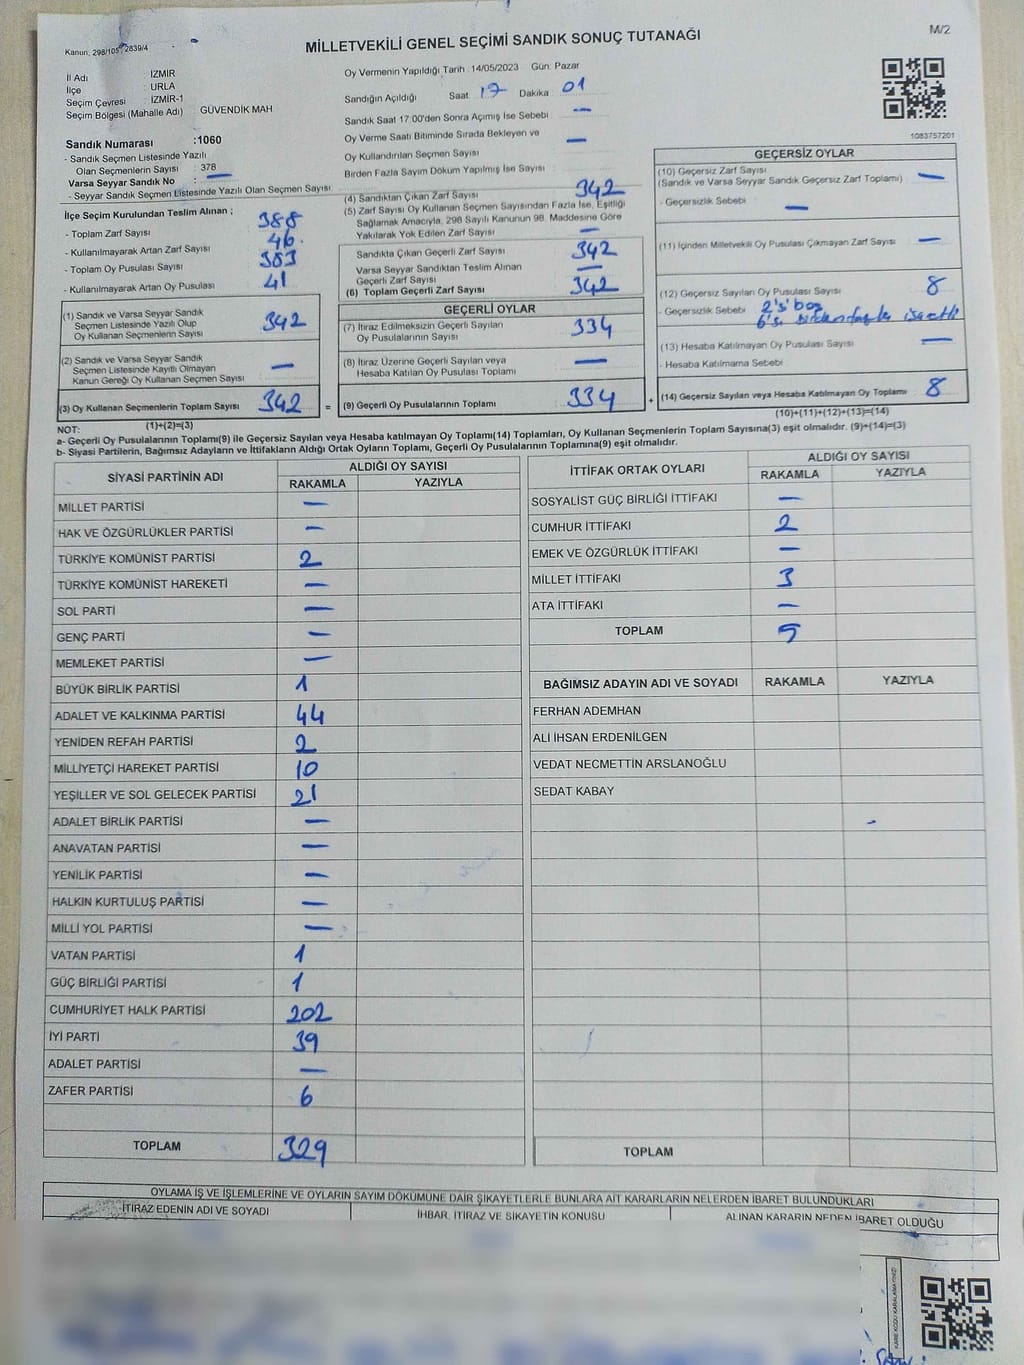 M/2
Kanun, 298/105, 2839/4
MİLLETVEKİLİ GENEL SEÇİMİ SANDIK SONUÇ TUTANAĞI
İl Adı İZMİR
İlçe : URLA
Seçim Çevresi : İZMİR-1
Seçim Bölgesi (Mahalle Adı) GÜVENDİK MAH
Sandık Numarası :1060
- Sandık Seçmen Listesinde Yazılı
Olan Seçmenlerin Sayısı : 378
Varsa Seyyar Sandık No —
- Seyyar Sandık Seçmen Listesinde Yazılı Olan Seçmen Sayısı:
İlçe Seçim Kurulundan Teslim Alınan ;
- Toplam Zarf Sayısı 388
- Kullanılmayarak Artan Zarf Sayısı 46
- Toplam Oy Pusulası Sayısı 383
- Kullanılmayarak Artan Oy Pusulası 41
(1) Sandık ve Varsa Seyyar Sandık
Seçmen Listesinde Yazılı Olup
Oy Kullanan Seçmenlerin Sayısı 342
(2) Sandık ve Varsa Seyyar Sandık
Seçmen Listesinde Kayıtlı Olmayan
Kanun Gereği Oy Kullanan Seçmen Sayısı —
(3) Oy Kullanan Seçmenlerin Toplam Sayısı 342 =
(1)+(2)=(3)
Oy Vermenin Yapıldığı Tarih : 14/05/2023 Gün: Pazar
Sandığın Açıldığı Saat 17 Dakika 01
Sandık Saat 17:00'den Sonra Açımış İse Sebebi —
Oy Verme Saati Bitiminde Sırada Bekleyen ve
Oy Kullandırılan Seçmen Sayısı —
Birden Fazla Sayım Döküm Yapılmış İse Sayısı
(4) Sandıktan Çıkan Zarf Sayısı 342
(5) Zarf Sayısı Oy Kullanan Seçmen Sayısından Fazla İse, Eşitliği
Sağlamak Amacıyla, 298 Sayılı Kanunun 98. Maddesine Göre
Yakılarak Yok Edilen Zarf Sayısı —
Sandıkta Çıkan Geçerli Zarf Sayısı 342
Varsa Seyyar Sandıktan Teslim Alınan
Geçerli Zarf Sayısı —
(6) Toplam Geçerli Zarf Sayısı 342
GEÇERLİ OYLAR
(7) İtiraz Edilmeksizin Geçerli Sayılan
Oy Pusulasının Sayısı 334
(8) İtiraz Üzerine Geçerli Sayılan veya
Hesaba Katılan Oy Pusulası Toplamı —
(9) Geçerli Oy Pusulalarının Toplamı 334 +
1083757201
GEÇERSİZ OYLAR
(10) Geçersiz Zarf Sayısı
(Sandık ve Varsa Seyyar Sandık Geçersiz Zarf Toplamı) —
- Geçersizlik Sebebi —
(11) İçinden Milletvekili Oy Pusulası Çıkmayan Zarf Sayısı —
(12) Geçersiz Sayılan Oy Pusulası Sayısı 8
- Geçersizlik Sebebi 2'si boş
6'sı birden fazla
(13) Hesaba Katılmayan Oy Pusulası Sayısı —
- Hesaba Katılmama Sebebi
(14) Geçersiz Sayılan veya Hesaba Katılmayan Oy Toplamı 8
(10)+(11)+(12)+(13)=(14)
NOT:
a- Geçerli Oy Pusulalarının Toplamı(9) ile Geçersiz Sayılan veya Hesaba katılmayan Oy Toplamı(14) Toplamları, Oy Kullanan Seçmenlerin Toplam Sayısına(3) eşit olmalıdır. (9)+(14)=(3)
b- Siyasi Partilerin, Bağımsız Adayların ve İttifakların Aldığı Ortak Oyların Toplamı, Geçerli Oy Pusulalarının Toplamına(9) eşit olmalıdır.
SİYASİ PARTİNİN ADI ALDIĞI OY SAYISI
RAKAMLA YAZIYLA
MİLLET PARTİSİ —
HAK VE ÖZGÜRLÜKLER PARTİSİ —
TÜRKİYE KOMÜNİST PARTİSİ 2
TÜRKİYE KOMÜNİST HAREKETİ —
SOL PARTİ —
GENÇ PARTİ —
MEMLEKET PARTİSİ —
BÜYÜK BİRLİK PARTİSİ 1
ADALET VE KALKINMA PARTİSİ 44
YENİDEN REFAH PARTİSİ 2
MİLLİYETÇİ HAREKET PARTİSİ 10
YEŞİLLER VE SOL GELECEK PARTİSİ 21
ADALET BİRLİK PARTİSİ —
ANAVATAN PARTİSİ —
YENİLİK PARTİSİ —
HALKIN KURTULUŞ PARTİSİ —
MİLLİ YOL PARTİSİ —
VATAN PARTİSİ 1
GÜÇ BİRLİĞİ PARTİSİ 1
CUMHURİYET HALK PARTİSİ 202
İYİ PARTİ 39
ADALET PARTİSİ —
ZAFER PARTİSİ 6
TOPLAM 329
İTTİFAK ORTAK OYLARI ALDIĞI OY SAYISI
RAKAMLA YAZIYLA
SOSYALİST GÜÇ BİRLİĞİ İTTİFAKI —
CUMHUR İTTİFAKI 2
EMEK VE ÖZGÜRLÜK İTTİFAKI —
MİLLET İTTİFAKI 3
ATA İTTİFAKI —
TOPLAM 5
BAĞIMSIZ ADAYIN ADI VE SOYADI RAKAMLA YAZIYLA
FERHAN ADEMHAN
ALİ İHSAN ERDENİLGEN
VEDAT NECMETTİN ARSLANOĞLU
SEDAT KABAY
TOPLAM
OYLAMA İŞ VE İŞLEMLERİNE VE OYLARIN SAYIM DÖKÜMÜNE DAİR ŞİKAYETLERLE BUNLARA AİT KARARLARIN NELERDEN İBARET BULUNDUKLARI
İTİRAZ EDENİN ADI VE SOYADI İHBAR, İTİRAZ VE ŞİKAYETİN KONUSU ALINAN KARARIN NEDEN İBARET OLDUĞU